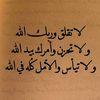 ولا تقلق وربك الله
ولا تحزن وأمرك بيد الله
ولا تيأس والأمل كله في الله